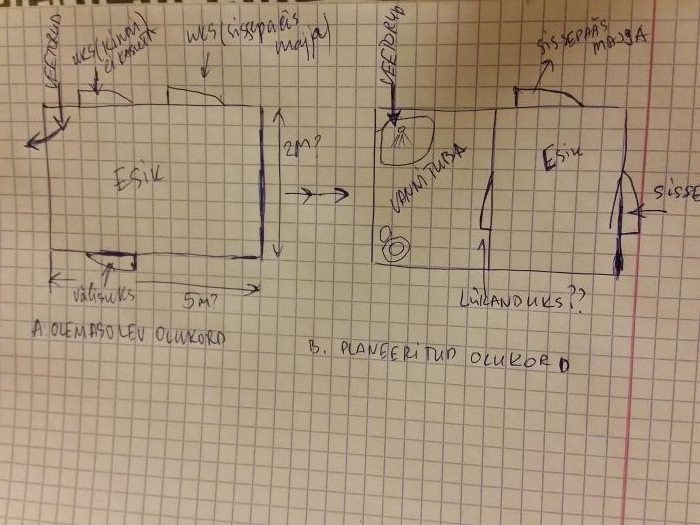 VEETORUD
UKS (KINNI
EI KASUTA
UKS (sissepääs
majja)
ESIK
2M?
välisuks
5m?
A. OLEMASOLEV OLUKORD
VEETORUD
SISSEPÄÄS
MAJJA
VANNITUBA
ESIK
SISSE
LÜKANDUKS??
B. PLANEERITUD OLUKORD